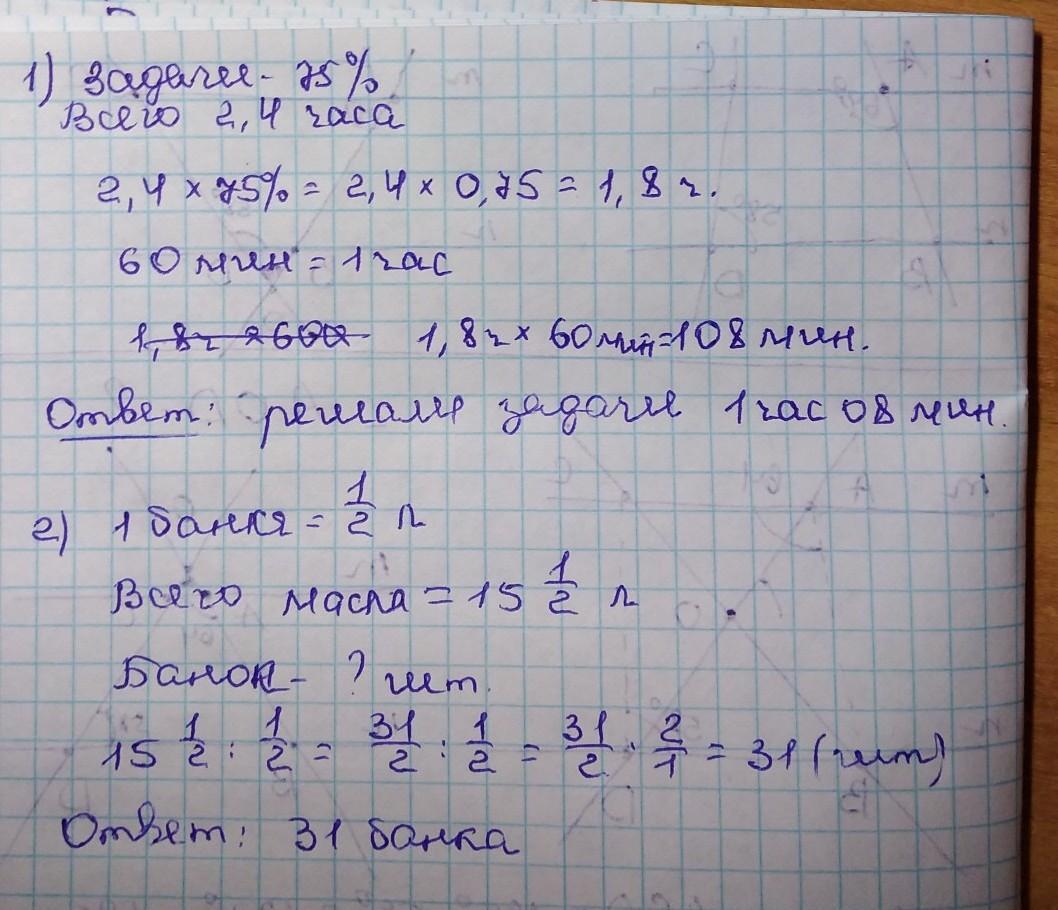 1) Задачи - 75%
Всего 2,4 часа
2,4 × 75% = 2,4 × 0,75 = 1,8 ч.
60 мин = 1 час
1,8ч × 60 мин = 108 мин.
Ответ: решали задачи 1 час 08 мин.
2) 1 банка = 1/2 л
Всего масла = 15 1/2 л
Банок - ? шт.
15 1/2 : 1/2 = 31/2 : 1/2 = 31/2 · 2/1 = 31 (шт)
Ответ: 31 банка